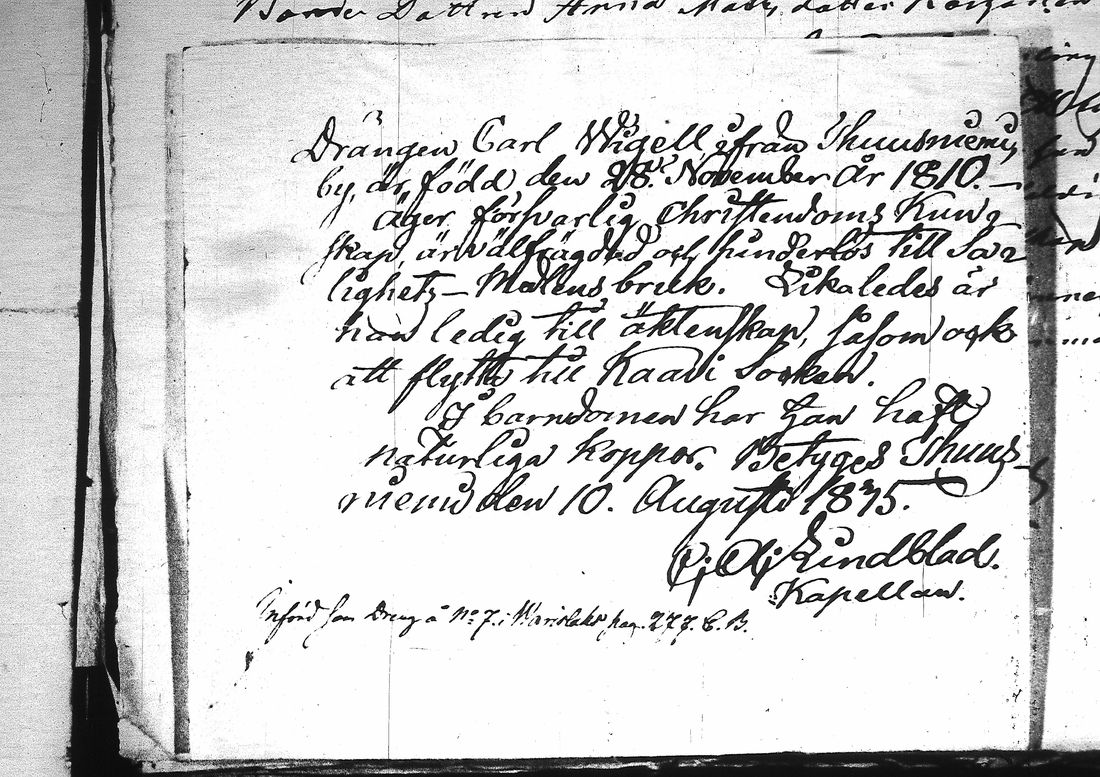 Bonde Dottren Anna
Drängen Carl Wigell ifrån Thuusniemi
by, är född den 28. November år 1810. —
äger försvarlig Christendoms Kun-
skap, är välfrägdad och hinderlös till Sa-
lighets-Medlens bruk. Likaledes är
han ledig till äktenskap, såsom ock
att flytta till Kaavi Socken.
I barndomen har han haft
naturliga koppor. Betyges Thuus-
niemi den 10. Augusti 1835.
Lindblad.
Kapellan.
Införd som Dreng å No 7. i pag. 277. C. B.